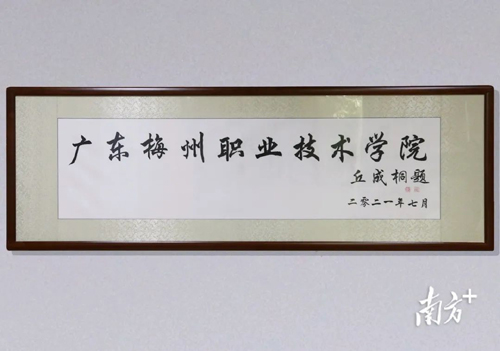 广东梅州职业技术学院
丘成桐题
二零二一年七月
南方+